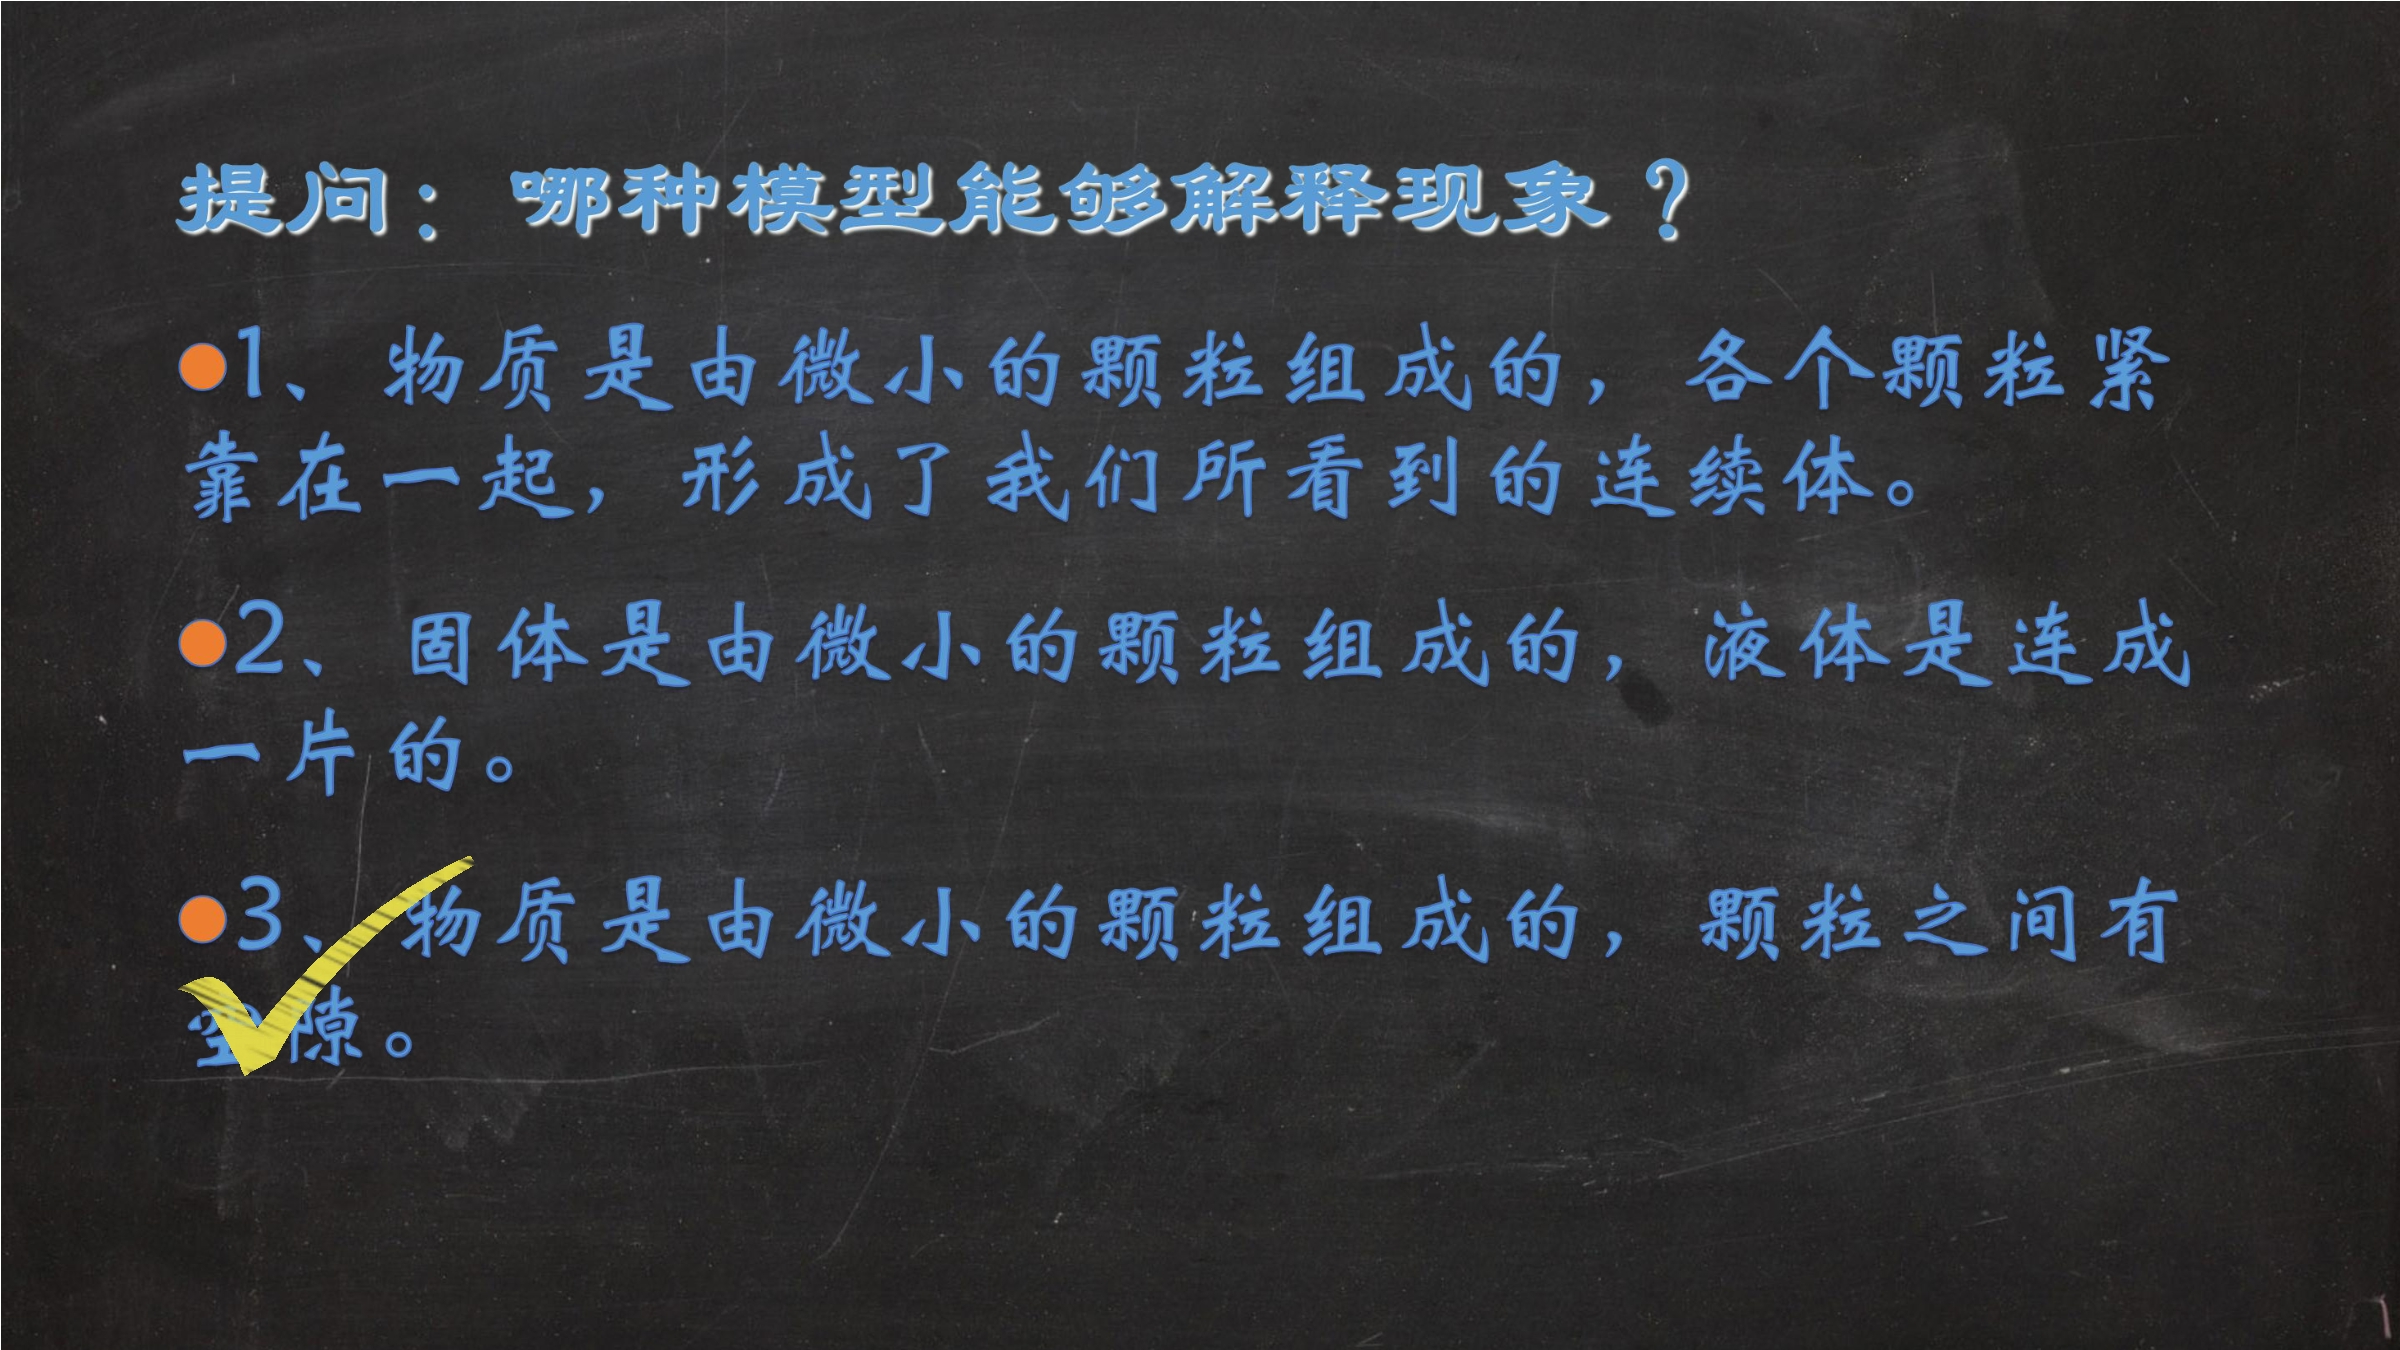 提问：哪种模型能够解释现象？
1、物质是由微小的颗粒组成的，各个颗粒紧
靠在一起，形成了我们所看到的连续体。
2、固体是由微小的颗粒组成的，液体是连成
一片的。
3、物质是由微小的颗粒组成的，颗粒之间有
空隙。